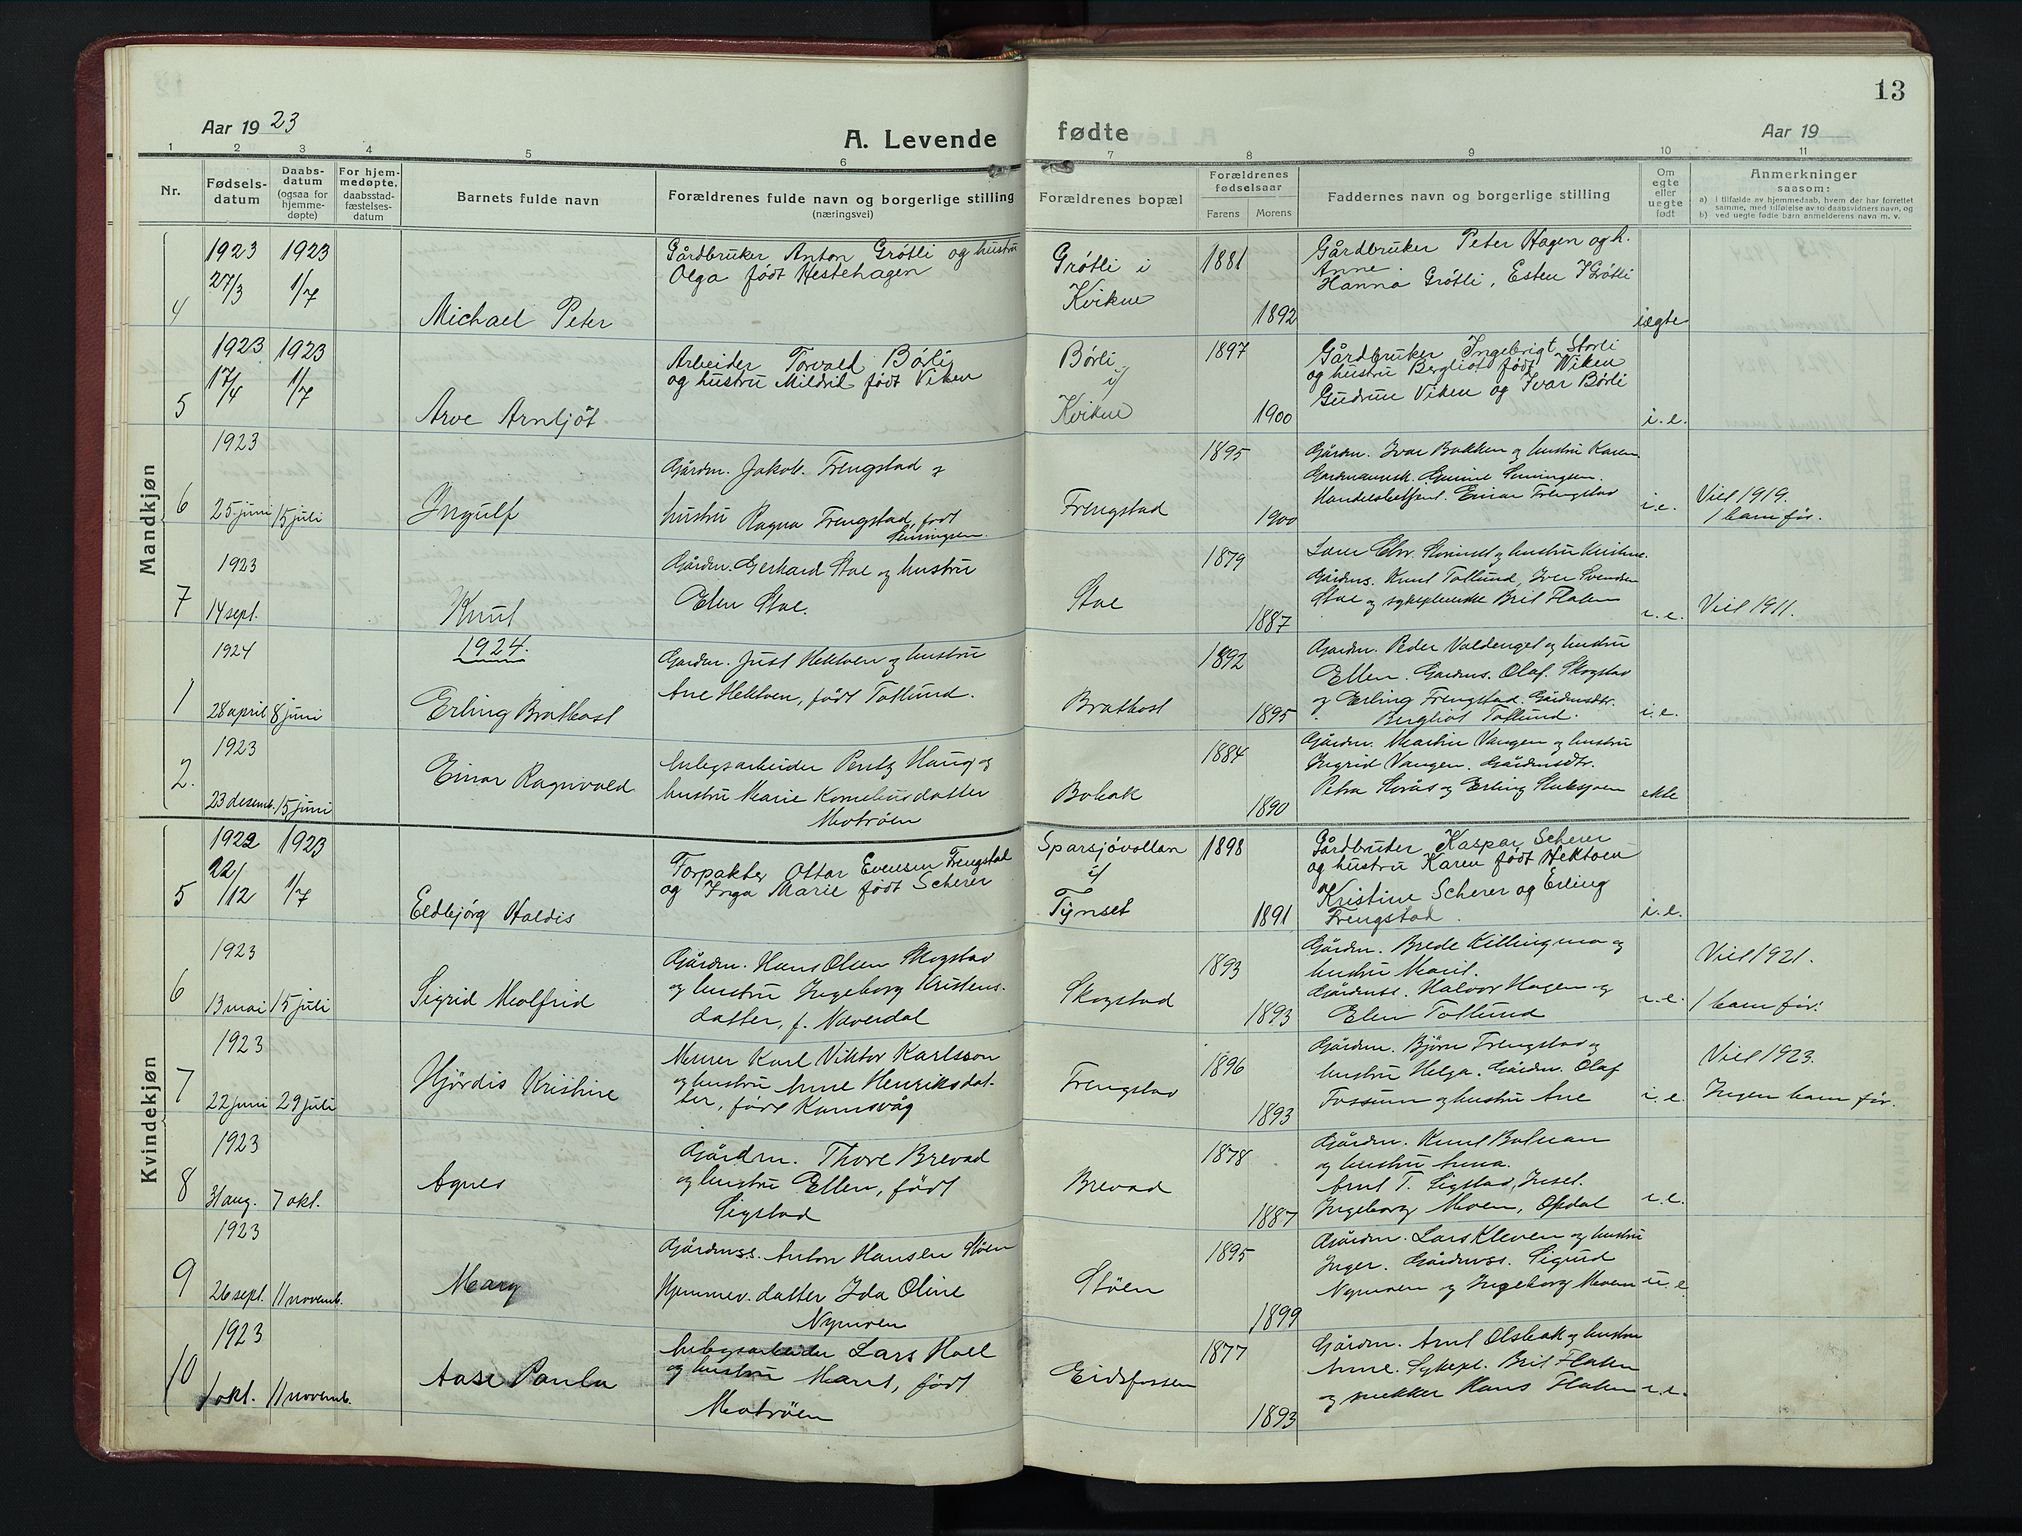 13
Aar 1923
A. Levende fødte
Aar 19
1 2 3 4 5 6 7 8 9 10 11
Nr.
Fødsels-
datum
Daabs-
datum
(ogsaa for
hjemme-
døpte)
For hjem-
medøpte,
daabsstad-
fæstelses-
datum
Barnets fulde navn
Forældrenes fulde navn og borgerlige stilling
(næringsvei)
Forældrenes bopæl
Forældrenes
fødselsaar
Farens
Morens
Faddernes navn og borgerlige stilling
Om
egte
eller
uegte
født
Anmerkninger
saasom:
a) I tilfælde av hjemmedaab, hvem der har forrettet
samme, med tilføielse av to daabsvidners navn, og
b) ved uegte fødte barn anmelderens navn m. v.
Mandkjøn
4
1923
27/3
1923
1/7
Michael Peter
Gårdbruker Anton Grøtli og hustru
Olga født Hestehagen
Grøtli i
Kvikne
1881
1892
Gårdbruker Peter Hagen og h.
Anne.
Hanna Grøtli, Esten Grøtli
iægte
5
1923
17/4
1923
1/7
Arve Arnljot
Arbeider Torvald Børli
og hustru Mildril født Viken
Børli
i
Kvikne
1897
1900
Gårdbruker Ingebrigt Storli
og hustru Bergliot født Viken
Gudrun Viken og Ivar Børli
i.e.
6
1923
25 juni
15 juli
Ingulf
Gårdm. Jakob Frengstad og
hustru Ragna Frengstad, født
Semingsen.
Frengstad
1895
1900
Gårdm. Ivar Bakken og hustru Karen
Gunne Semingsen.
Einar Frengstad
i.e.
Viel 1919.
1 barn før.
7
1923
14 sept.
Knut
Gårdm. Gerhard Stae og hustru
Elen Stae.
Stae
1879
1887
og hustru Kirstine.
Gårdms. Knut Tollund, Iver Svendsen
Stae og sykepleierske Bril Flaten
i.e.
Viel 1911.
1924.
1
1924
28 april
8 juni
Erling Brathost
Gårdm. Just Hektoen og hustru
Ane Hektoen, født Tollund.
Brathost
1892
1895
Gårdm. Peder Valdenget og hustru
Ellen. Gårdms. Olaf Skogstad
og Erling Frengstad. Gårdmdtr.
Bergliot Tollund.
i.e.
2.
1923
23 desemb.
15 juni
Einar Ragnvald
Anlegsarbeider Pentz Haug og
hustru Marie Korneliusdatter
Motrøen
Bobak
1884
1890
Gårdm. Martin Vangen og hustru
Ingrid Vangen. Gårdmdtr.
Petra Storås og Erling Stubsjoen
ekte
Kvindekjøn
5
1922
22/12
1923
1/7
Eldbjørg Haldis
Forpakter Ottar Evensen Frengstad
og Inga Marie født Scherer
Sparsjøvollan
i
Tynset
1898
1891
Gårdbruker Kaspar Scherer
og hustru Karen født Hektoen
Kristine Scherer og Erling
Frengstad.
i.e.
6
1923
13 mai
15 juli
Sigrid Malfrid
Gårdm. Hans Olsen Skogstad
og hustru Ingeborg Kristens-
datter, f. Næverdal
Skogstad
1893
1893
Gårdm. Brede Killingmo og
hustru Marit.
Gårdmss. Halvor Hagen og
Elen Tollund
i.e.
Viel 1921.
1 barn før.
7
1923
22 juni
29 juli
Hjørdis Kristine
Murer Karl Viktor Karlsson
og hustru Anne Henriksdat-
ter, født Kamsvåg
Frengstad
1896
1893
Gårdm. Bjørn Frengstad og
hustru Helga. Gårdm. Olaf
Fossum og hustru Ane
i.e.
Viel 1923.
Ingen barn før.
8
1923
31 aug.
7 okt.
Agnes
Gårdm. Thore Brevad
og hustru Ellen, født
Sigstad
Brevad
1878
1887
Gårdm. Knut Bolman
og hustru Anna.
Arnt T. Sigstad, Inset.
Ingeborg Moen, Opdal
i.e.
9
1923
26 sept.
11 novemb.
Mary
Gårdmss. Anton Hansen Støen
Hjemmev. datter Ida Oline
Nymoen
Støen
1895
1899
Gårdm. Lars Kleven og hustru
Inger. Gårdmss. Sigurd
Nymoen og Ingeborg Moen
u.e.
10
1923
1 okt.
11 novemb.
Aase Paula
Anlegsarbeider Lars Hoel
og hustru Marit, født
Motrøen
Eidsfossen
1877
1893
Gårdm. Arnt Olsbak og hustru
Anne. Sykepl. Bril Flaten
og snekker Hans Flaten
i.e.